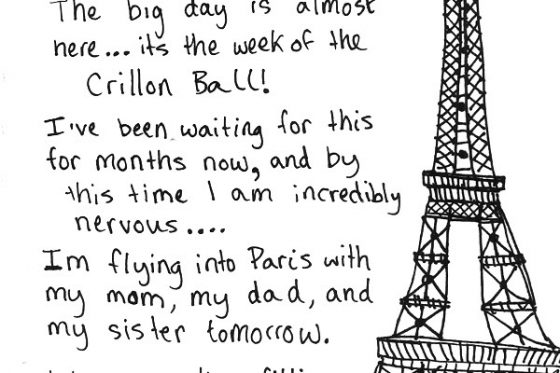 The big day is almost
here... its the week of the
Crillon Ball!
I've been waiting for this
for months now, and by
this time I am incredibly
nervous....
Im flying into Paris with
my mom, my dad, and
my sister tomorrow.